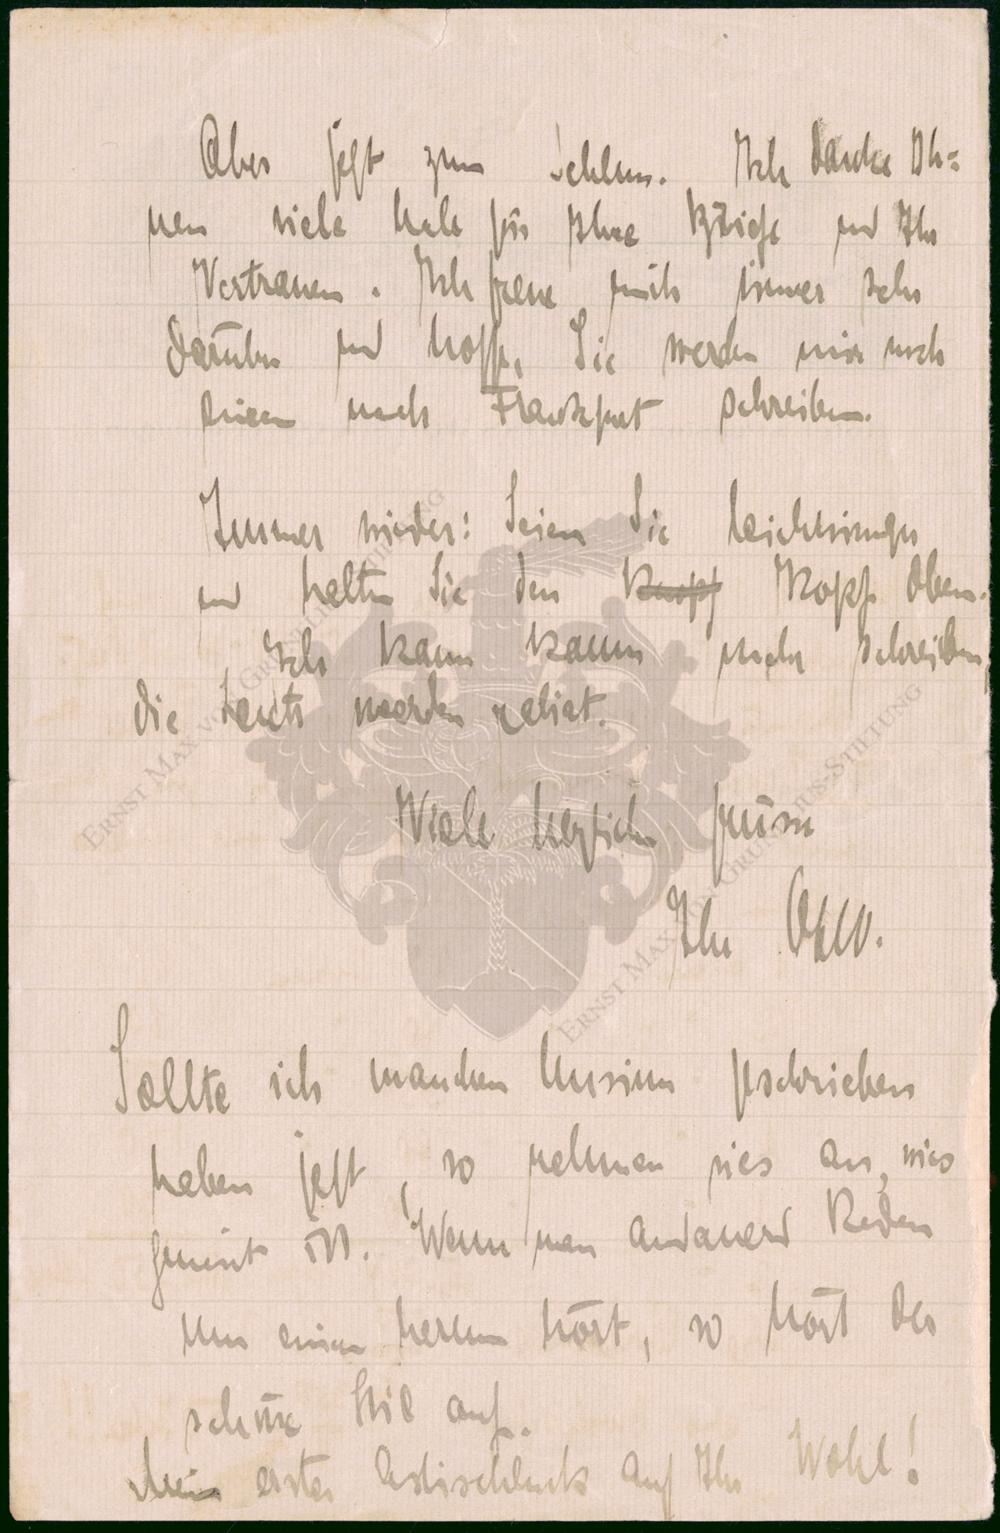 Aber jetzt zum Schluss. Ich danke Ih=
nen viele male für Ihre Briefe und Ihr
Vertrauen. Ich freue mich immer sehr
darüber und hoffe, Sie werden mir noch
einen nach Frankfurt schreiben.
Immer wieder: Seien Sie leichtsinniger
und halten Sie den Knopf Kopf oben.
Ich kann kaum mehr schreiben,
die Leute werden
Viele herzliche Grüsse
Ihr
Sollte ich manchen Unsinn geschrieben
haben jetzt, so nehmen sies an, wies
gemeint ist. Wenn man andauernd Reden
um einen herum hört, so hört der
schöne Stil auf.
Mein erster auf Ihr Wohl!
ERNST MAX VON GRUNELIUS-STIFTUNG
ERNST MAX VON GRUNELIUS-STIFTUNG